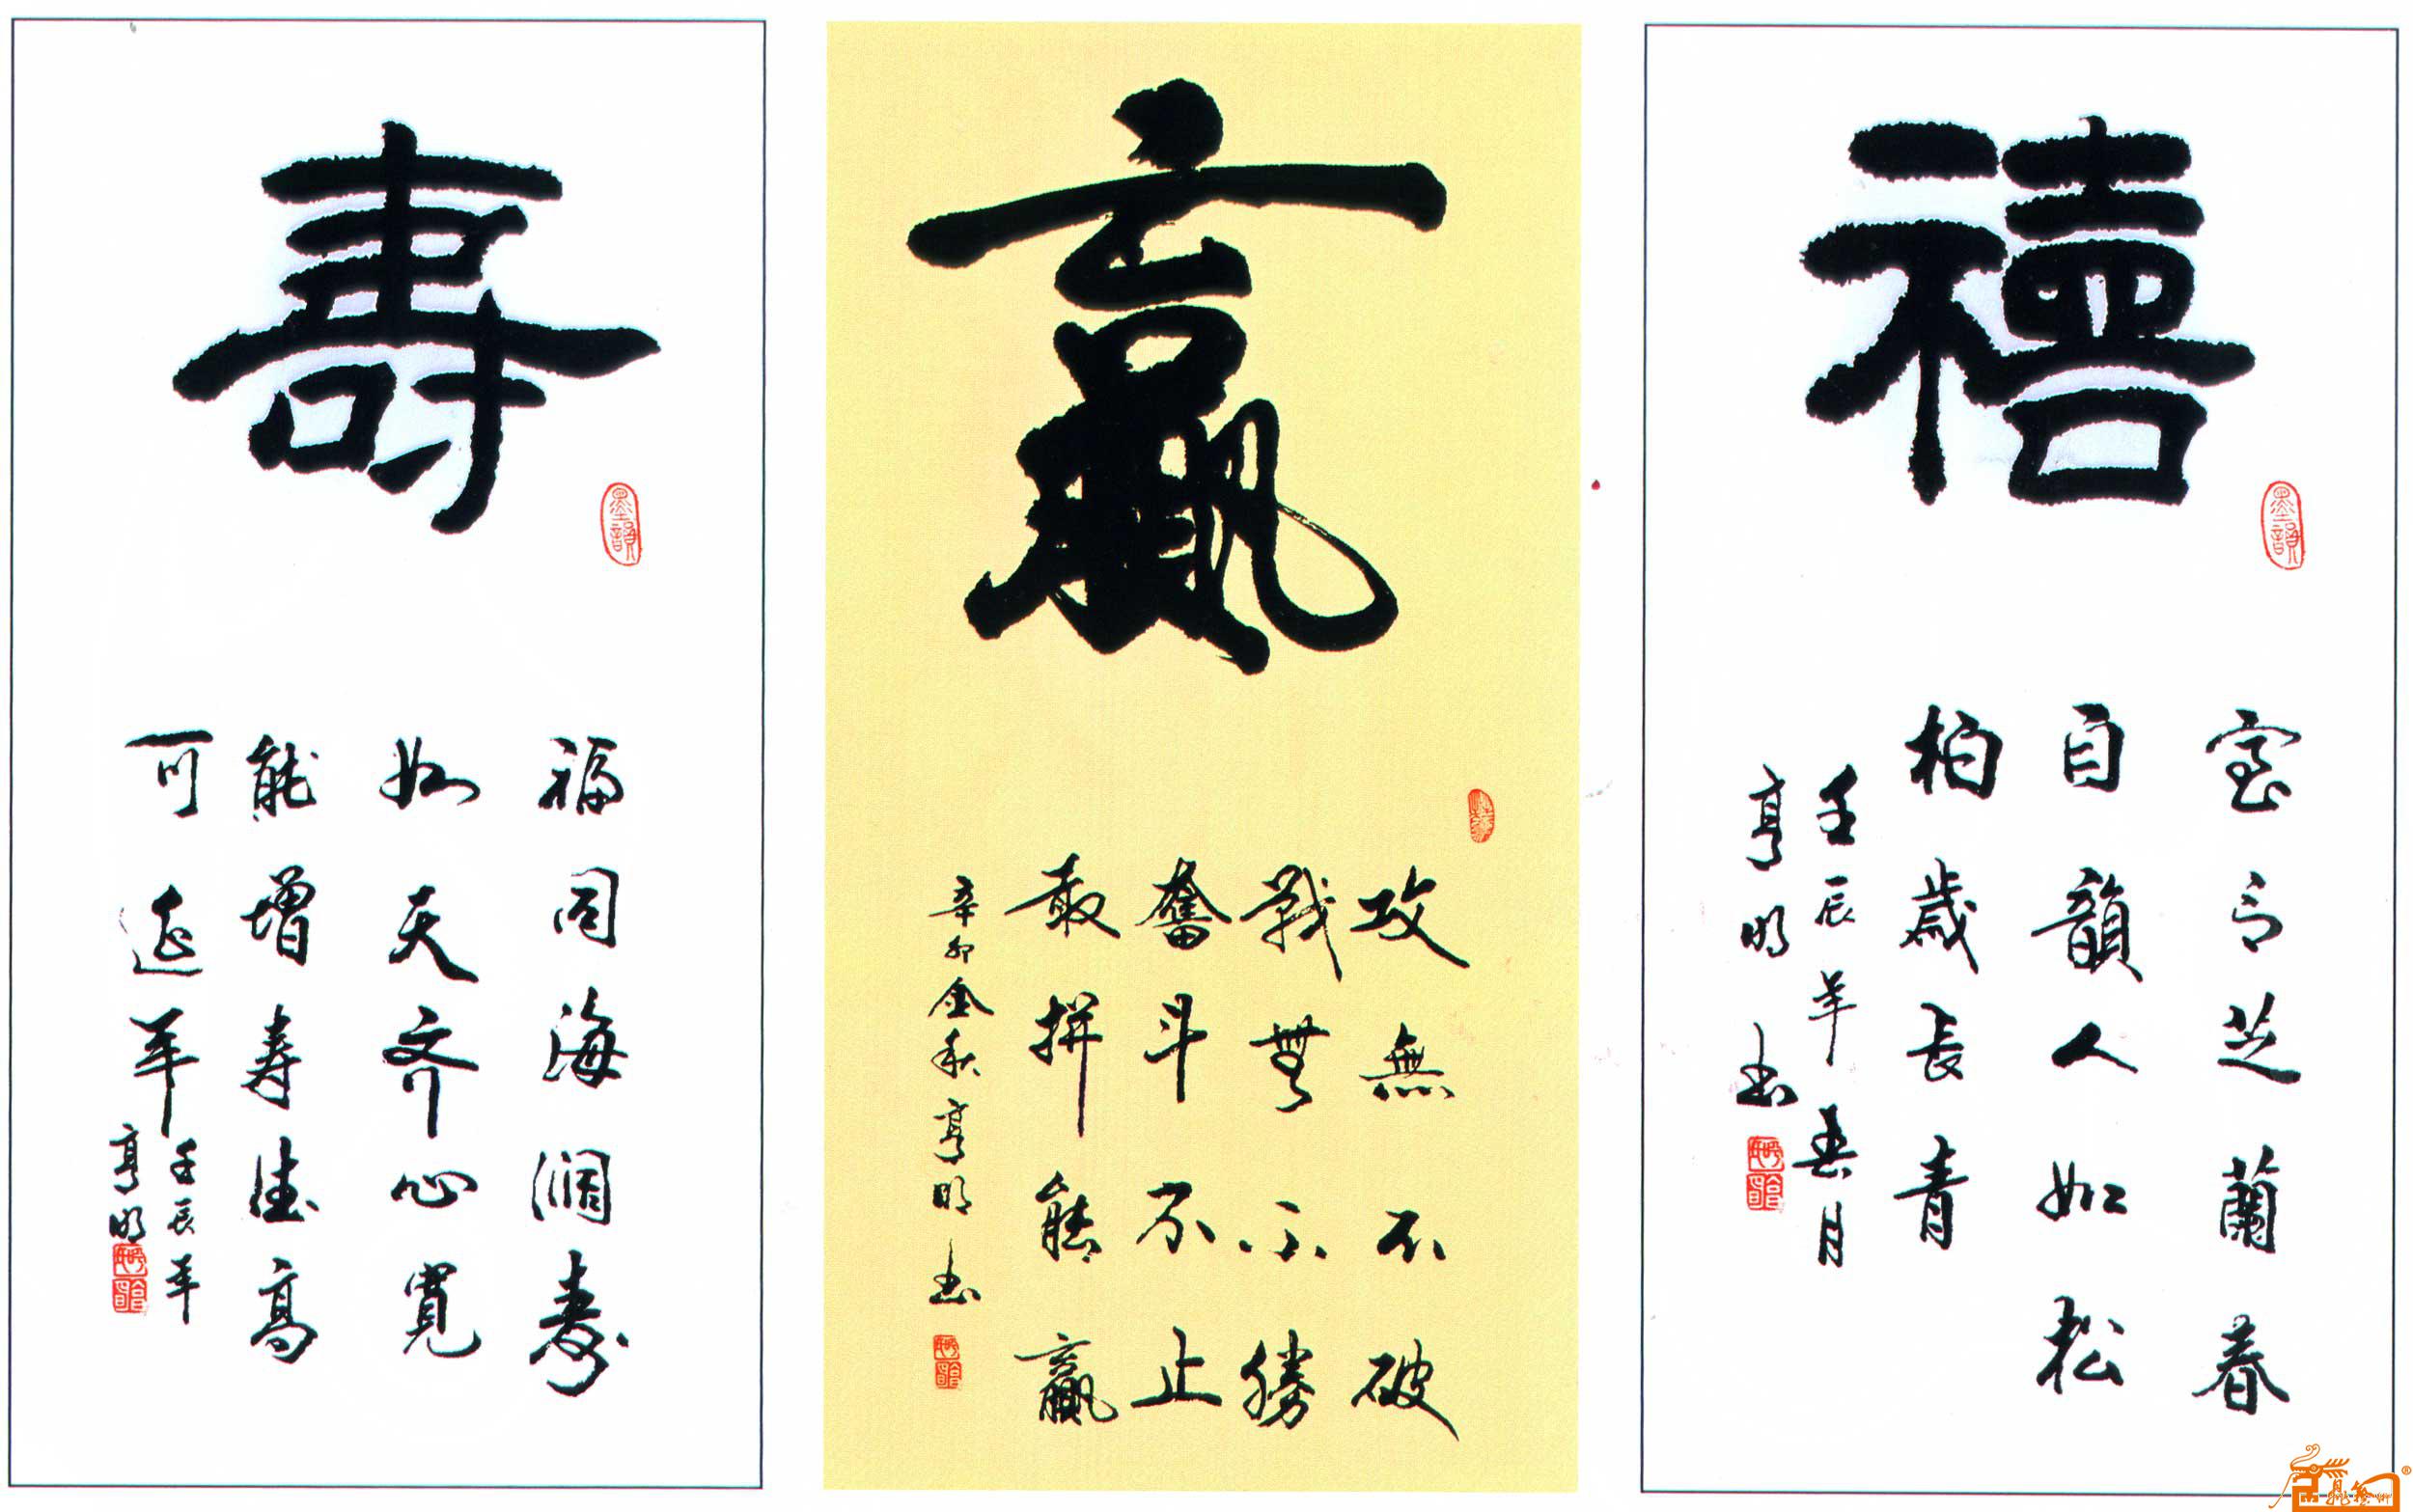 壽
墨韻
福同海濶壽
如天齐心寬
能增寿德高
可延年
壬辰年
亨明
赢
攻無不破
戰無不勝
奮斗不止
敢拼能赢
辛卯金秋亨明书
禧
墨韻
室有芝蘭春
自韻人如松
柏歲長青
壬辰年春月
亨明书